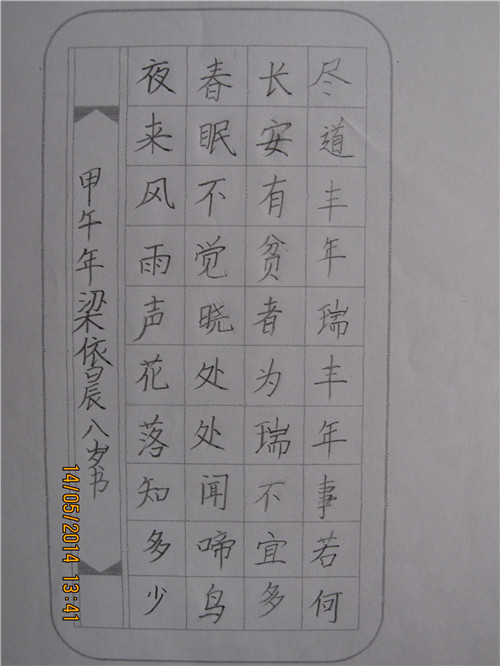 尽道丰年瑞丰年事若何
长安有贫者为瑞不宜多
春眠不觉晓处处闻啼鸟
夜来风雨声花落知多少
甲午年梁依晨八岁书
14/05/2014 13:41